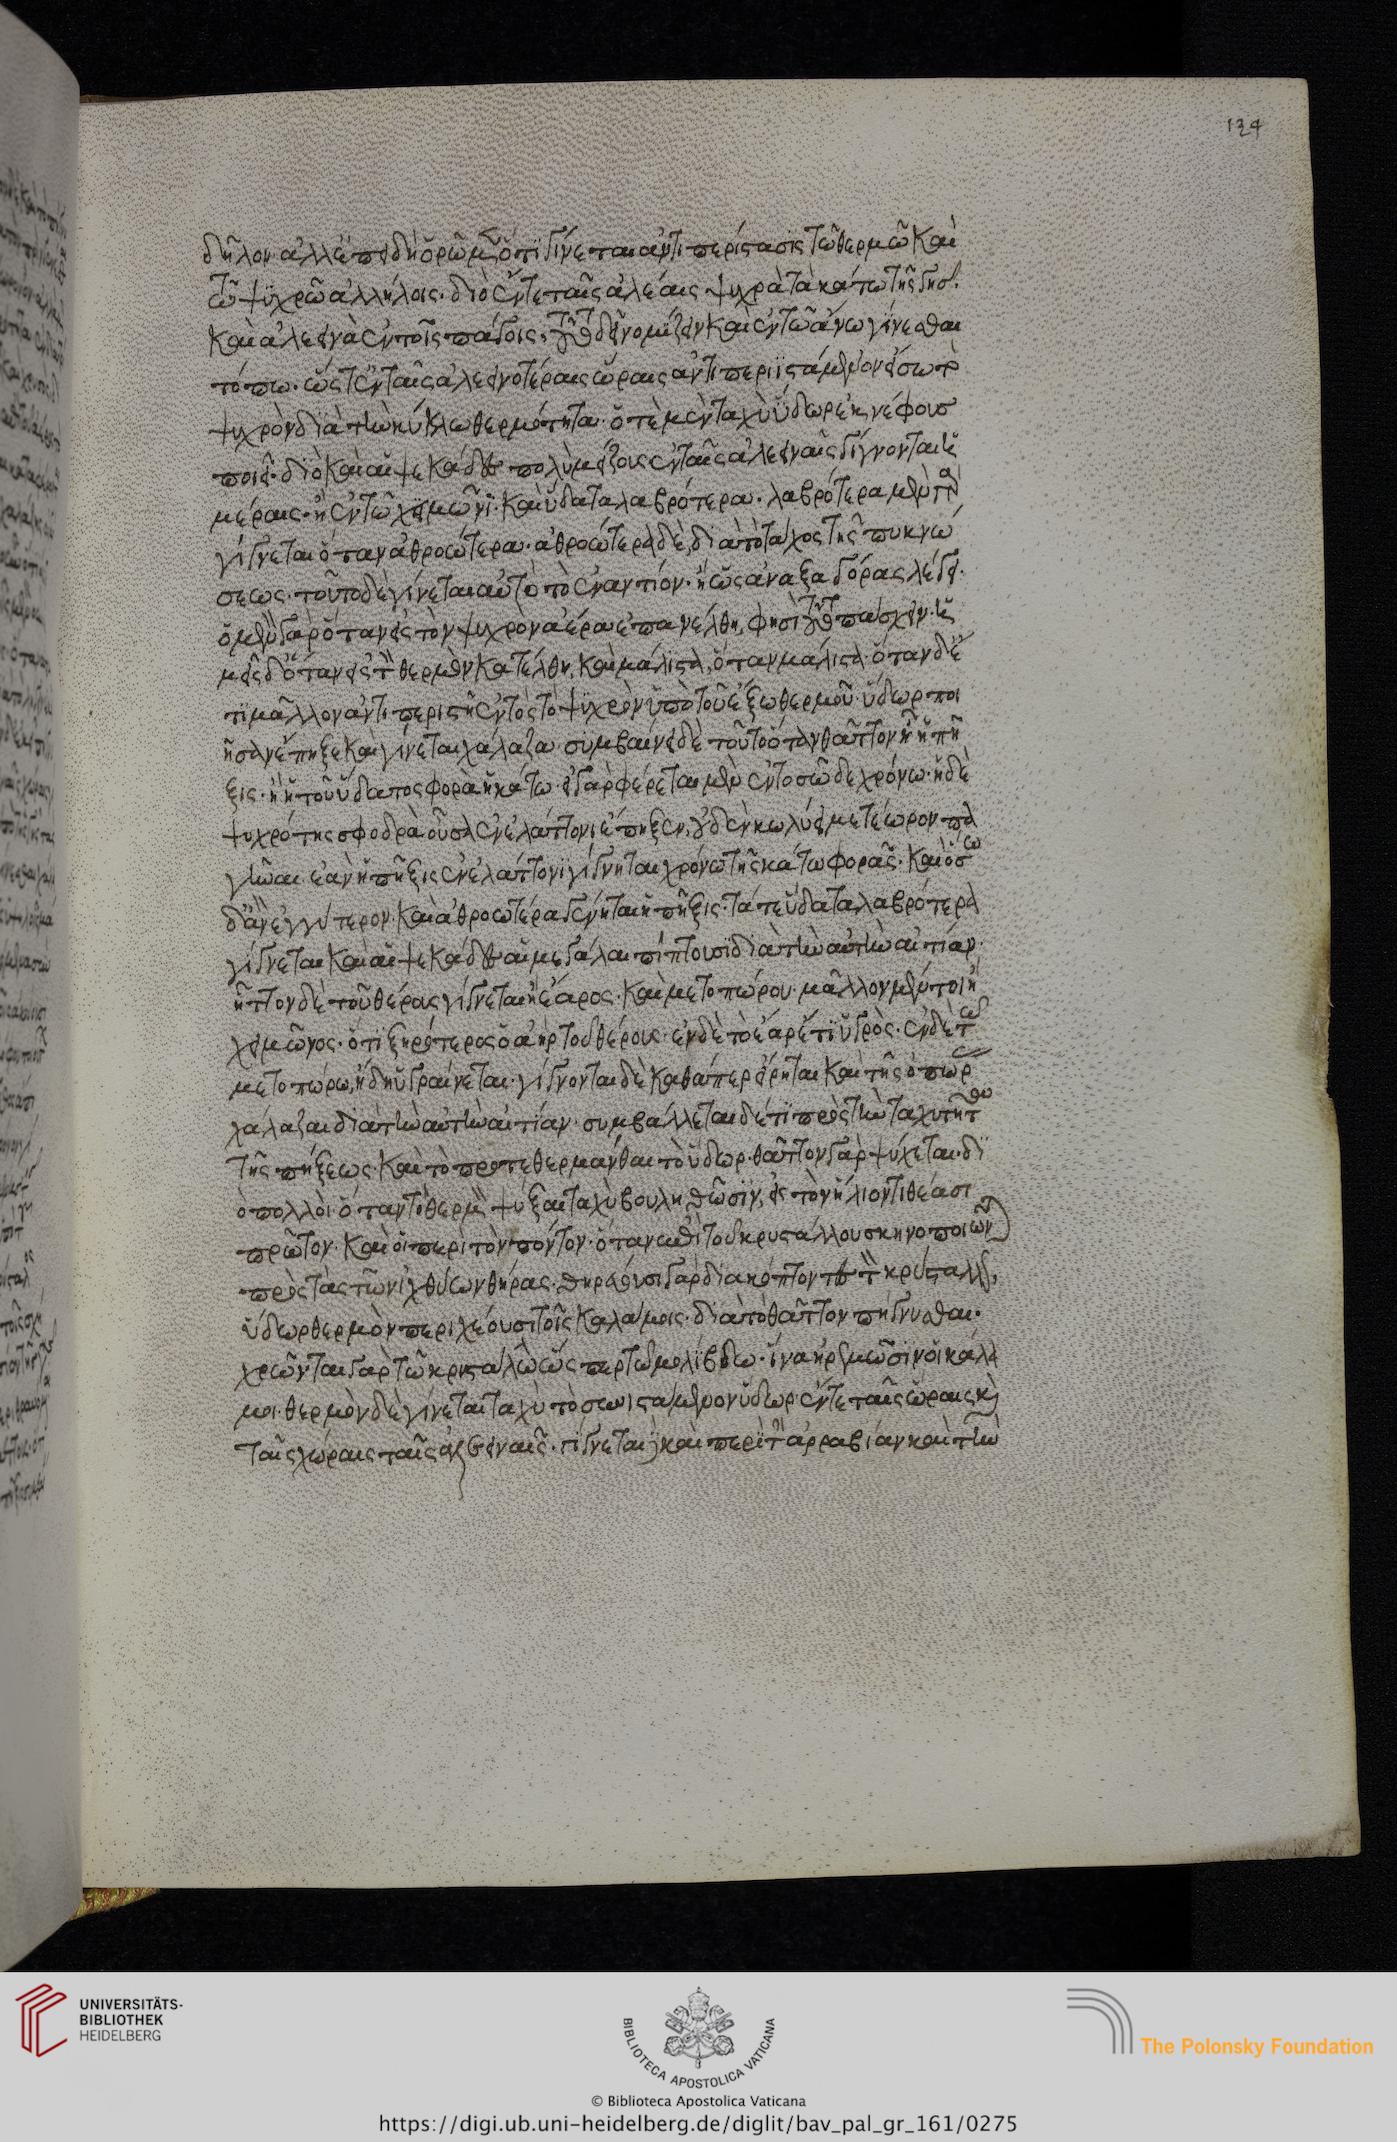 δῆλον· ἀλλ' ἐπειδὴ ὁρῶμεν ὅτι γίνεται ἀντιπερίστασις τῶ θερμῶ καὶ
τῶ ψυχρῶ ἀλλήλοις· διὸ ἔν τε ταῖς ἀλέαις ψυχρὰ τὰ κάτω τῆς γῆς·
καὶ ἀλεεινὰ ἐν τοῖς πάγοις, τοῦτο δεῖ νομίζειν καὶ ἐν τῶ ἄνω γίνεσθαι
τόπω· ὥστ' ἐν ταῖς ἀλεεινοτέραις ὥραις ἀντιπεριϊστάμενον εἴσω τὸ
ψυχρὸν διὰ τὴν κύκλω θερμότητα· ὁτὲ μὲν ταχὺ ὕδωρ ἐκ νέφους
ποιεῖ· διὸ καὶ αἱ ψεκάδες πολὺ μείζους ἐν ταῖς ἀλεειναῖς γίγνονται ἡ
μέραις· ἢ ἐν τῶ χειμῶνι· καὶ ὕδατα λαβρότερα· λαβρότερα μὲν γὰρ
γίγνεται ὅταν ἀθροώτερα· ἀθροώτερα δὲ, διὰ τὸ τάχος τῆς πυκνώ
σεως· τοῦτο δὲ γίνεται αὐτὸ τὸ ἐναντίον· ἢ ὡς ἀναξαγόρας λέγει·
ὁ μὲν γὰρ ὅταν εἰς τὸν ψυχρὸν ἀέρα ἐπανέλθη, φησὶ τοῦτο πάσχειν· ἡ
μεῖς δ' ὅταν εἰς τὸν θερμὸν κατέλθη, καὶ μάλιστα, ὅταν μάλιστα· ὅταν δ' ἔ
τι μᾶλλον ἀντιπεριστῆ ἐντὸς τὸ ψυχρὸν ὑπὸ τοῦ ἔξω θερμοῦ· ὕδωρ ποι
ῆσαν ἔπηξε καὶ γίνεται χάλαζα· συμβαίνει δὲ τοῦτο ὅταν θᾶττον ἦ ἡ πῆ
ξις· ἢ ἡ τοῦ ὕδατος φορὰ ἡ κάτω· εἰ γὰρ φέρεται μὲν ἐν τοσῶδε χρόνω· ἡ δὲ
ψυχρότης σφοδρὰ οὖσα ἐν ἐλάττονι ἔπηξεν, οὐδὲν κωλύει μετέωρον πα
γῆναι· ἐὰν ἡ πῆξις ἐν ἐλάττονι γίγνηται χρόνω τῆς κάτω φορᾶς· καὶ ὅσω
δ' ἂν ἐγγύτερον· καὶ ἀθροωτέρα γένηται ἡ πῆξις· τά τε ὕδατα λαβρότερα
γίγνεται καὶ αἱ ψεκάδες αἱ μεγάλαι πίπτουσι διὰ τὴν αὐτὴν αἰτίαν·
ἧττον δὲ τοῦ θέρους γίγνεται ἢ ἔαρος· καὶ μετοπώρου· μᾶλλον μέντοι ἢ
χειμῶνος· ὅτι ξηρότερος ὁ ἀὴρ τοῦ θέρους· ἐν δὲ τῶ ἔαρι ἔτι ὑγρὸς· ἐν δὲ τῶ
μετοπώρω, ἤδη ὑγραίνεται· γίγνονται δὲ καθάπερ εἴρηται καὶ τῆς ὀπώρας
χάλαζαι διὰ τὴν αὐτὴν αἰτίαν· συμβάλλεται δέ τι πρὸς τὴν ταχυτῆτα
τῆς πήξεως· καὶ τὸ προτεθερμάνθαι τὸ ὕδωρ· θᾶττον γὰρ ψύχεται· δι
ὸ πολλοὶ ὅταν τὸ θερμὸν ψύξαι ταχὺ βουληθῶσιν, εἰς τὸν ἥλιον τιθέασι
πρῶτον· καὶ οἱ περὶ τὸν πόντον· ὅταν ἐπὶ τοῦ κρυστάλλου σκηνοποιῶνται
πρὸς τὰς τῶν ἰχθύων θήρας· θηρεύουσι γὰρ διακόπτοντες τὸν κρύσταλλον,
ὕδωρ θερμὸν περιχέουσι τοῖς καλάμοις· διὰ τὸ θᾶττον πήγνυσθαι·
χρῶνται γὰρ τῶ κρυστάλλω ὥσπερ τῶ μολίβδω· ἵνα ἠρεμῶσιν οἱ κάλα
μοι· θερμὸν δὲ γίνεται ταχὺ τὸ συνιστάμενον ὕδωρ· ἔν τε ταῖς ὥραις καὶ
ταῖς χώραις ταῖς ἀλεειναῖς· γίγνεται δὲ καὶ περὶ τὴν ἀρραβίαν καὶ τὴν
134
UNIVERSITÄTS-
BIBLIOTHEK
HEIDELBERG
BIBLIOTECA APOSTOLICA VATICANA
The Polonsky Foundation
© Biblioteca Apostolica Vaticana
https://digi.ub.uni-heidelberg.de/diglit/bav_pal_gr_161/0275